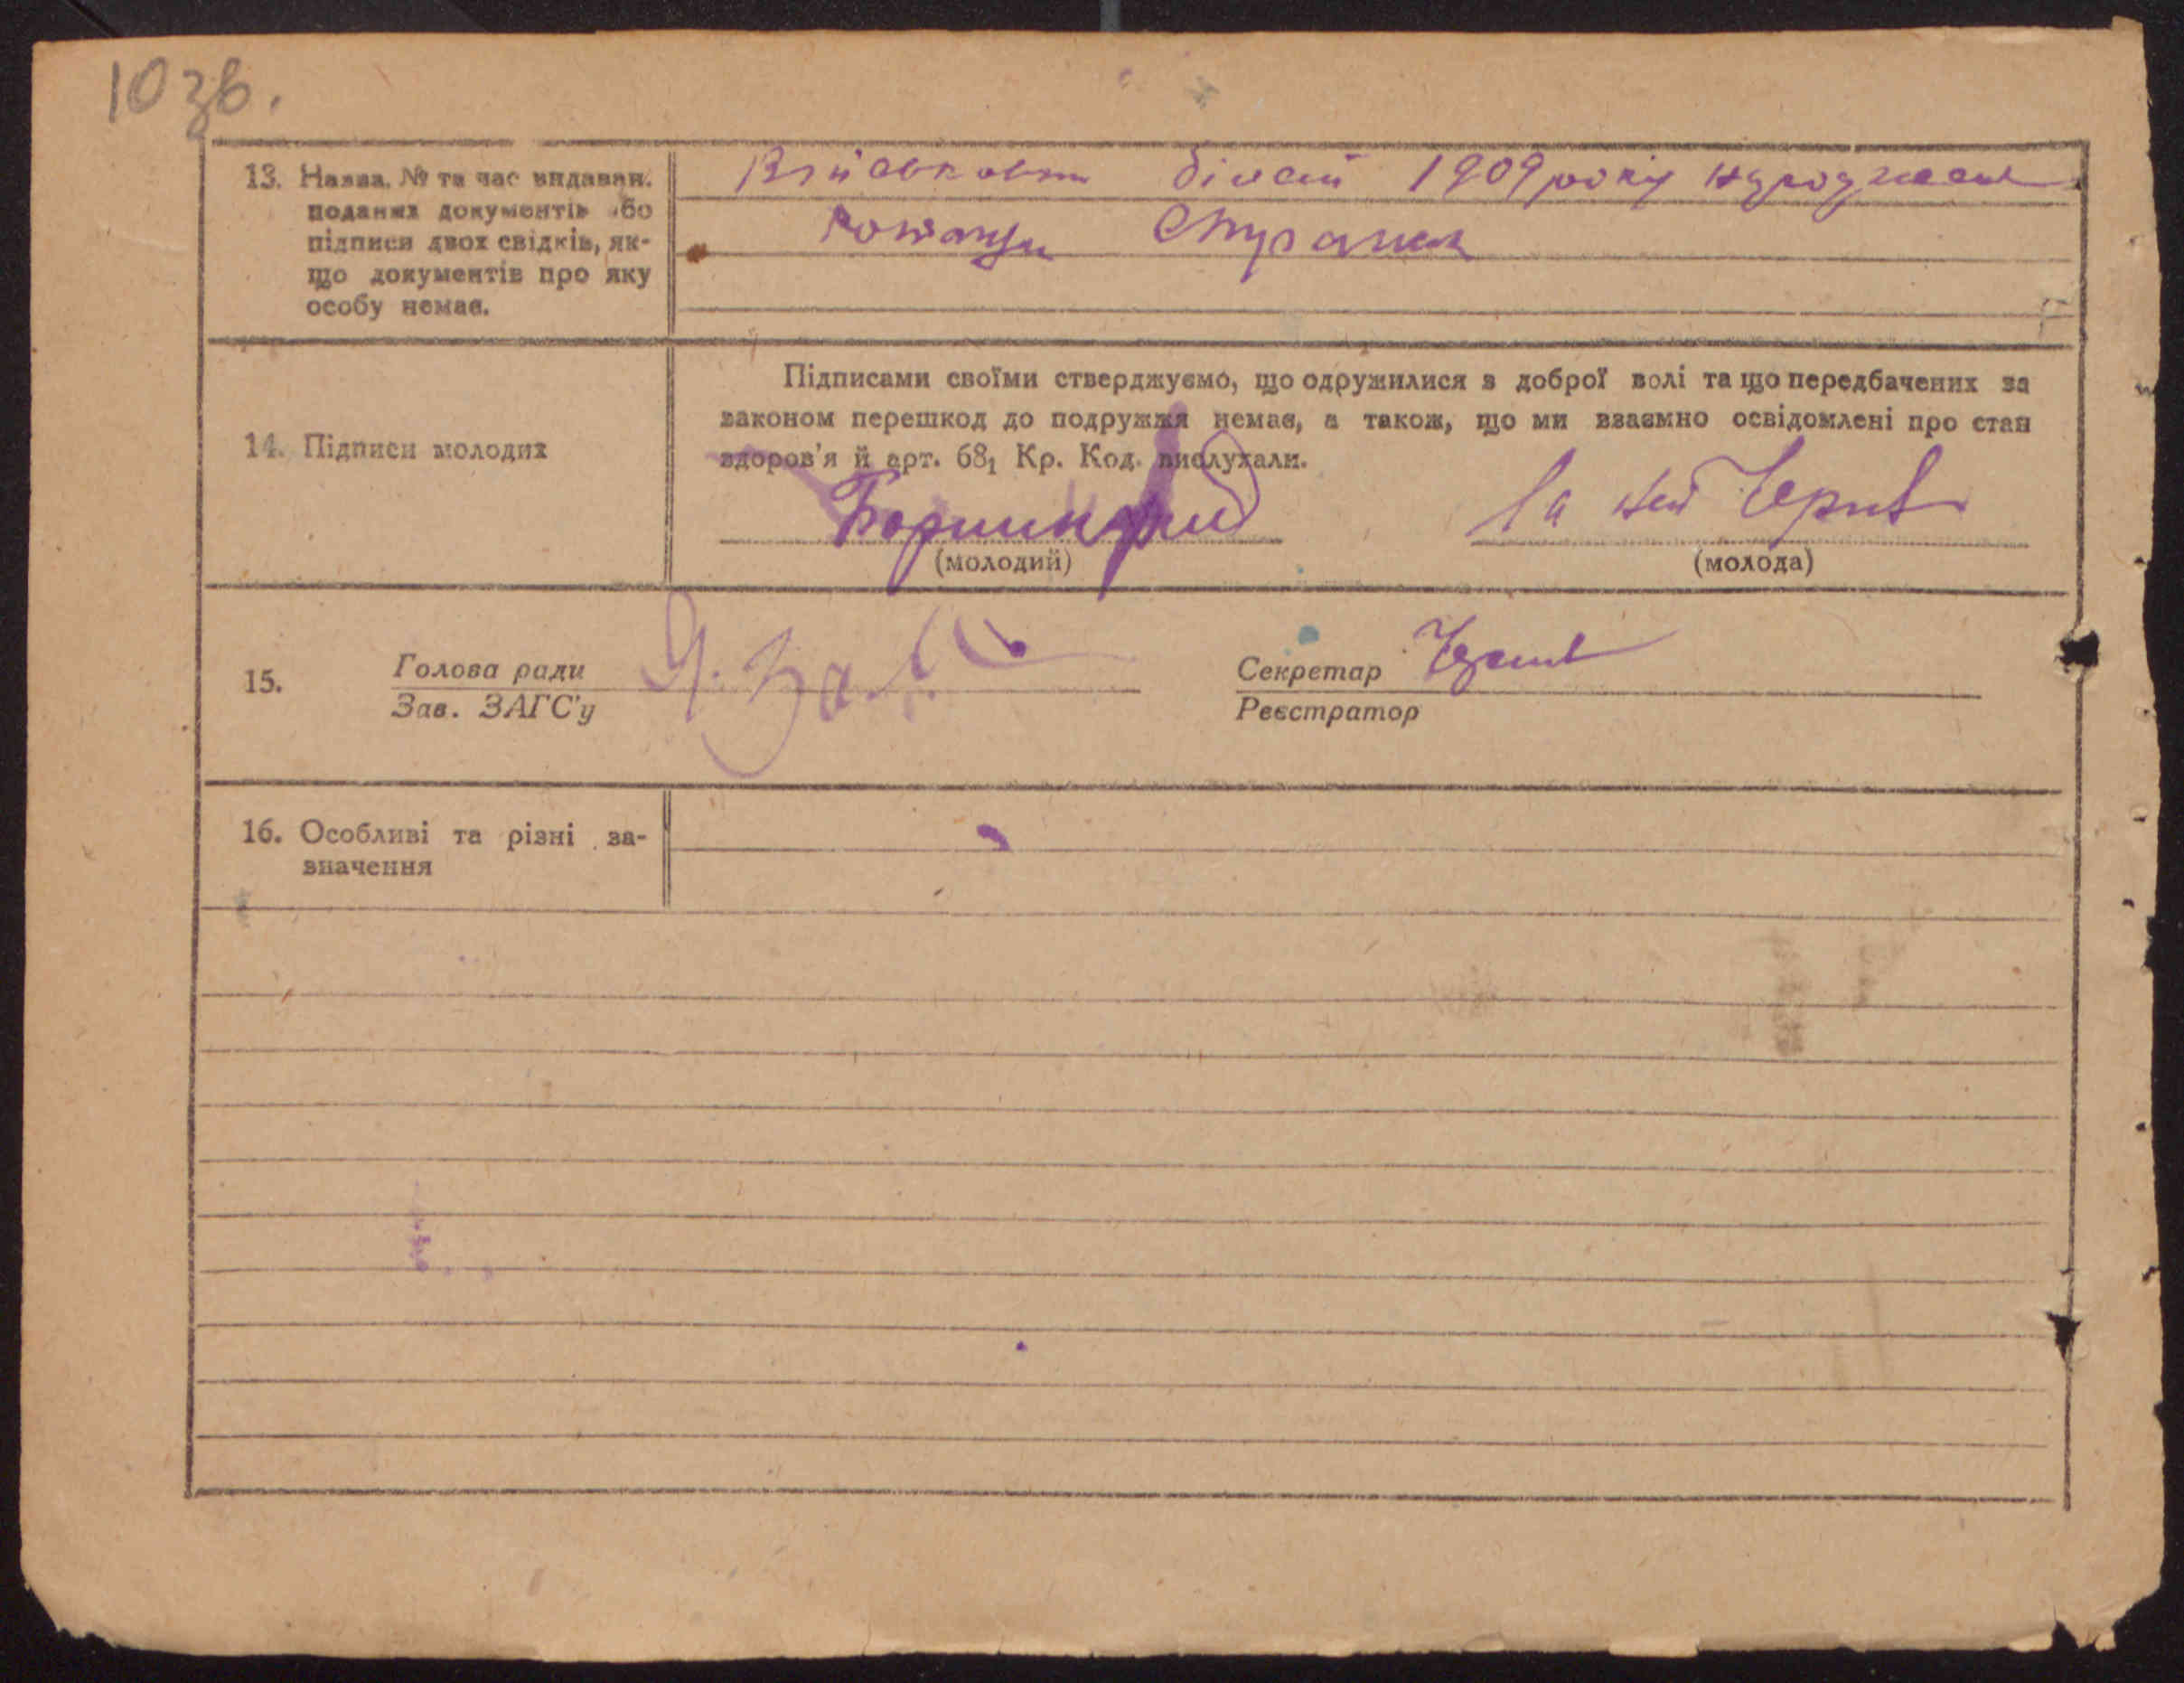 10 зв.
13. Назва, № та час видаван.
поданих документів або
підписи двох свідків, як-
що документів про яку
особу немає.
Військовий білет 1909 року народження
14. Підписи молодих
Підписами своїми стверджуємо, що одружилися з доброї волі та що передбачених за
законом перешкод до подружжя немає, а також, що ми взаємно освідомлені про стан
здоров'я й арт. 68₁ Кр. Код. вислухали.
За неї
(молодий) (молода)
15. Голова ради
Зав. ЗАГС'у
Секретар
Реєстратор
16. Особливі та різні за-
значення